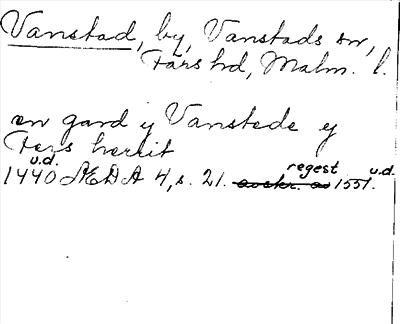 Vanstad, by, Vanstads sn,
Färs hd, Malm. l.
en gard y Vanstede y
Fers herrit
u.d. regest u.d.
1440 ÆDA 4, s. 21. avskr. av 1551.